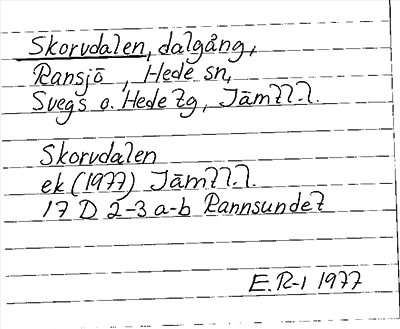 Skorvdalen, dalgång,
Ransjö, Hede sn,
Svegs o. Hede tg, Jämtl.l.
Skorvdalen
ek (1977) Jämtl.l.
17 D 2-3 a-b Rannsundet
E.R-1 1977